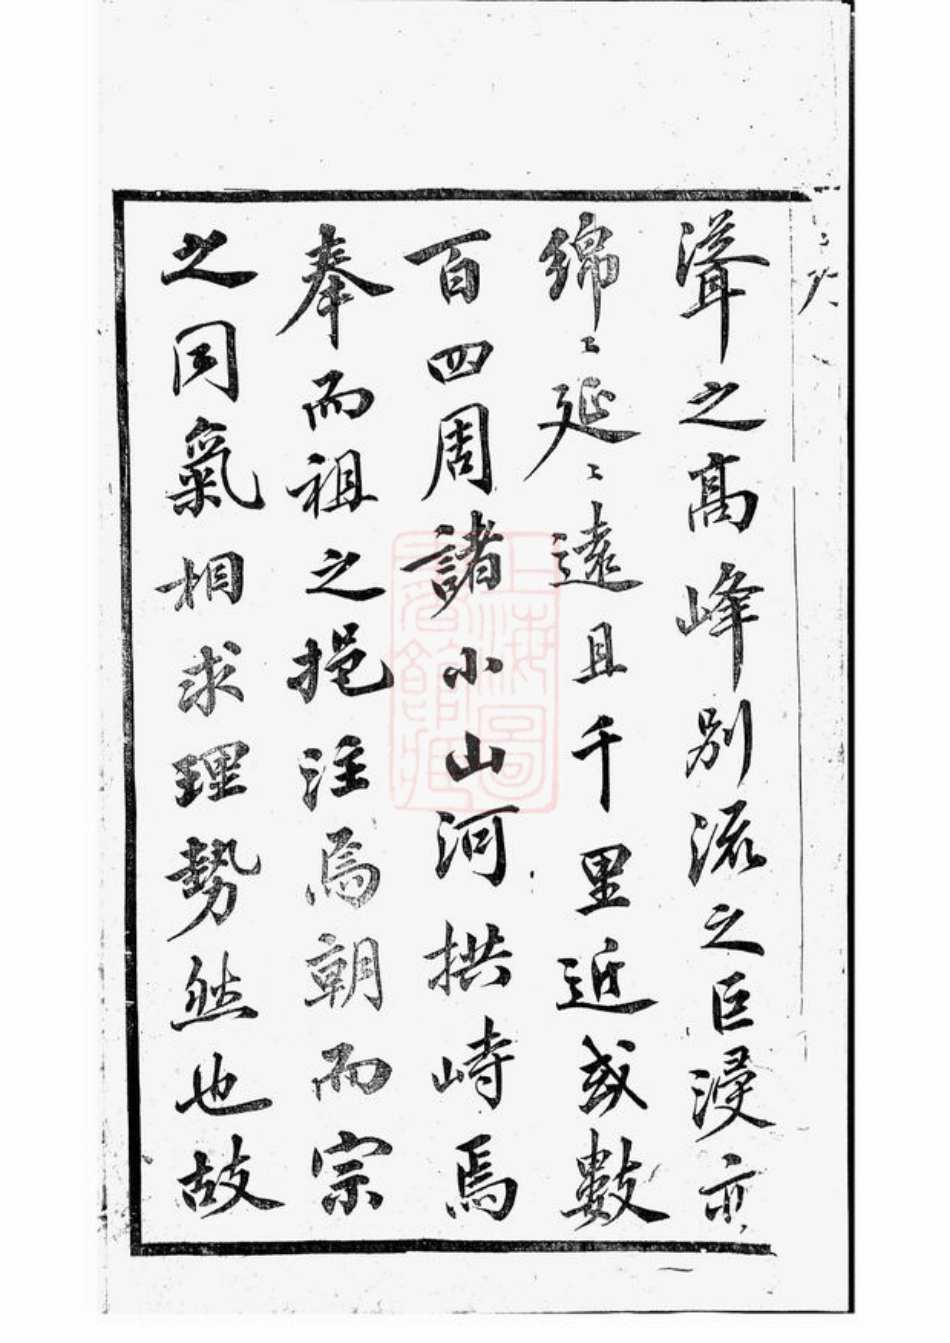 聳之高峰別流之巨浸亦
綿〻延〻遠且千里近或數
百四周諸小山河拱峙焉
奉而祖之挹注焉朝而宗
之同氣相求理勢然也故
上海圖書館藏